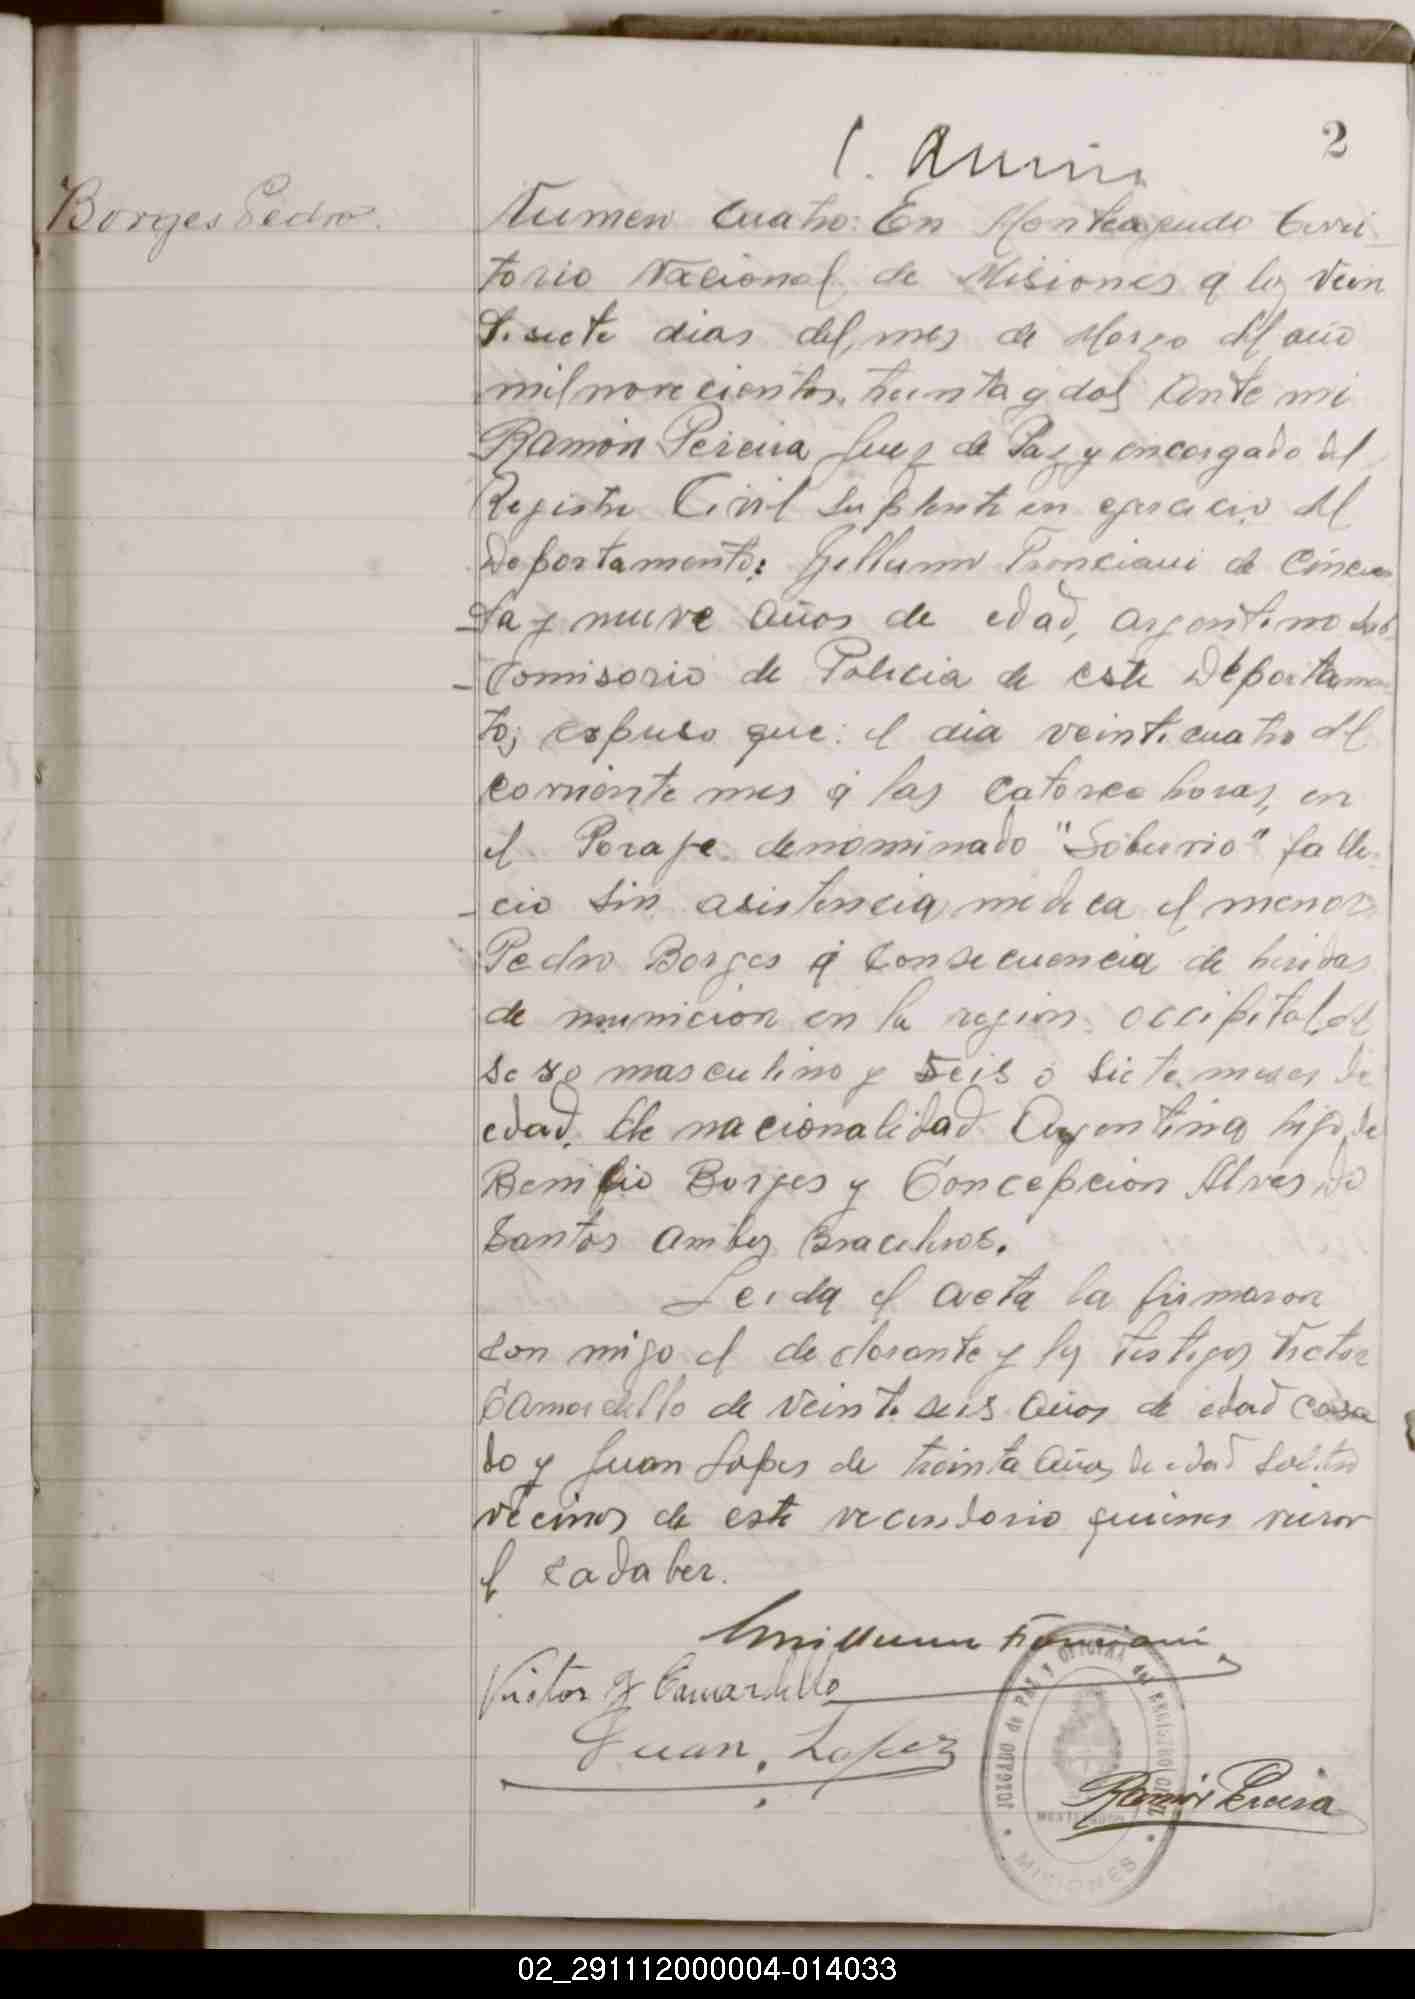 2
Borges Pedro.
Numero Cuatro: En Monteagudo Terri
torio Nacional de Misiones á los Vein
tisiete dias del mes de Marzo del año
mil novecientos treinta y dos Ante mi
Ramón Pereira Juez de Paz y encargado del
Registro Civil Suplente en ejercicio del
Departamento: Gillermo Franciani de Cincuen
ta y nueve años de edad, argentino Sub
Comisario de Policia de este Departamen
to; espuso que: el dia veinticuatro del
corriente mes á las catorce horas, en
el Paraje denominado "Soberio" falle
cio sin asistencia medica el menor
Pedro Borges á consecuencia de heridas
de municion en la region occipital, del
sexo masculino y seis o siete meses de
edad. de nacionalidad Argentina hijo de
Borges y Concepcion Alves do
Santos ambos Braceleros.
Leida el acta la firmaron
con migo el declarante y los testigos Victor
Camardello de veintiseis años de edad casa
do y Juan Lopes de treinta años de edad soltero
vecinos de este vecindario quienes vieron
el cadaber.
Guillermo Franciani
Victor J Camardello
Juan Lopez
JUZGADO de PAZ Y OFICINA del REGISTRO CIVIL
MONTEAGUDO
MISIONES
Ramón Pereira
02_291112000004-014033